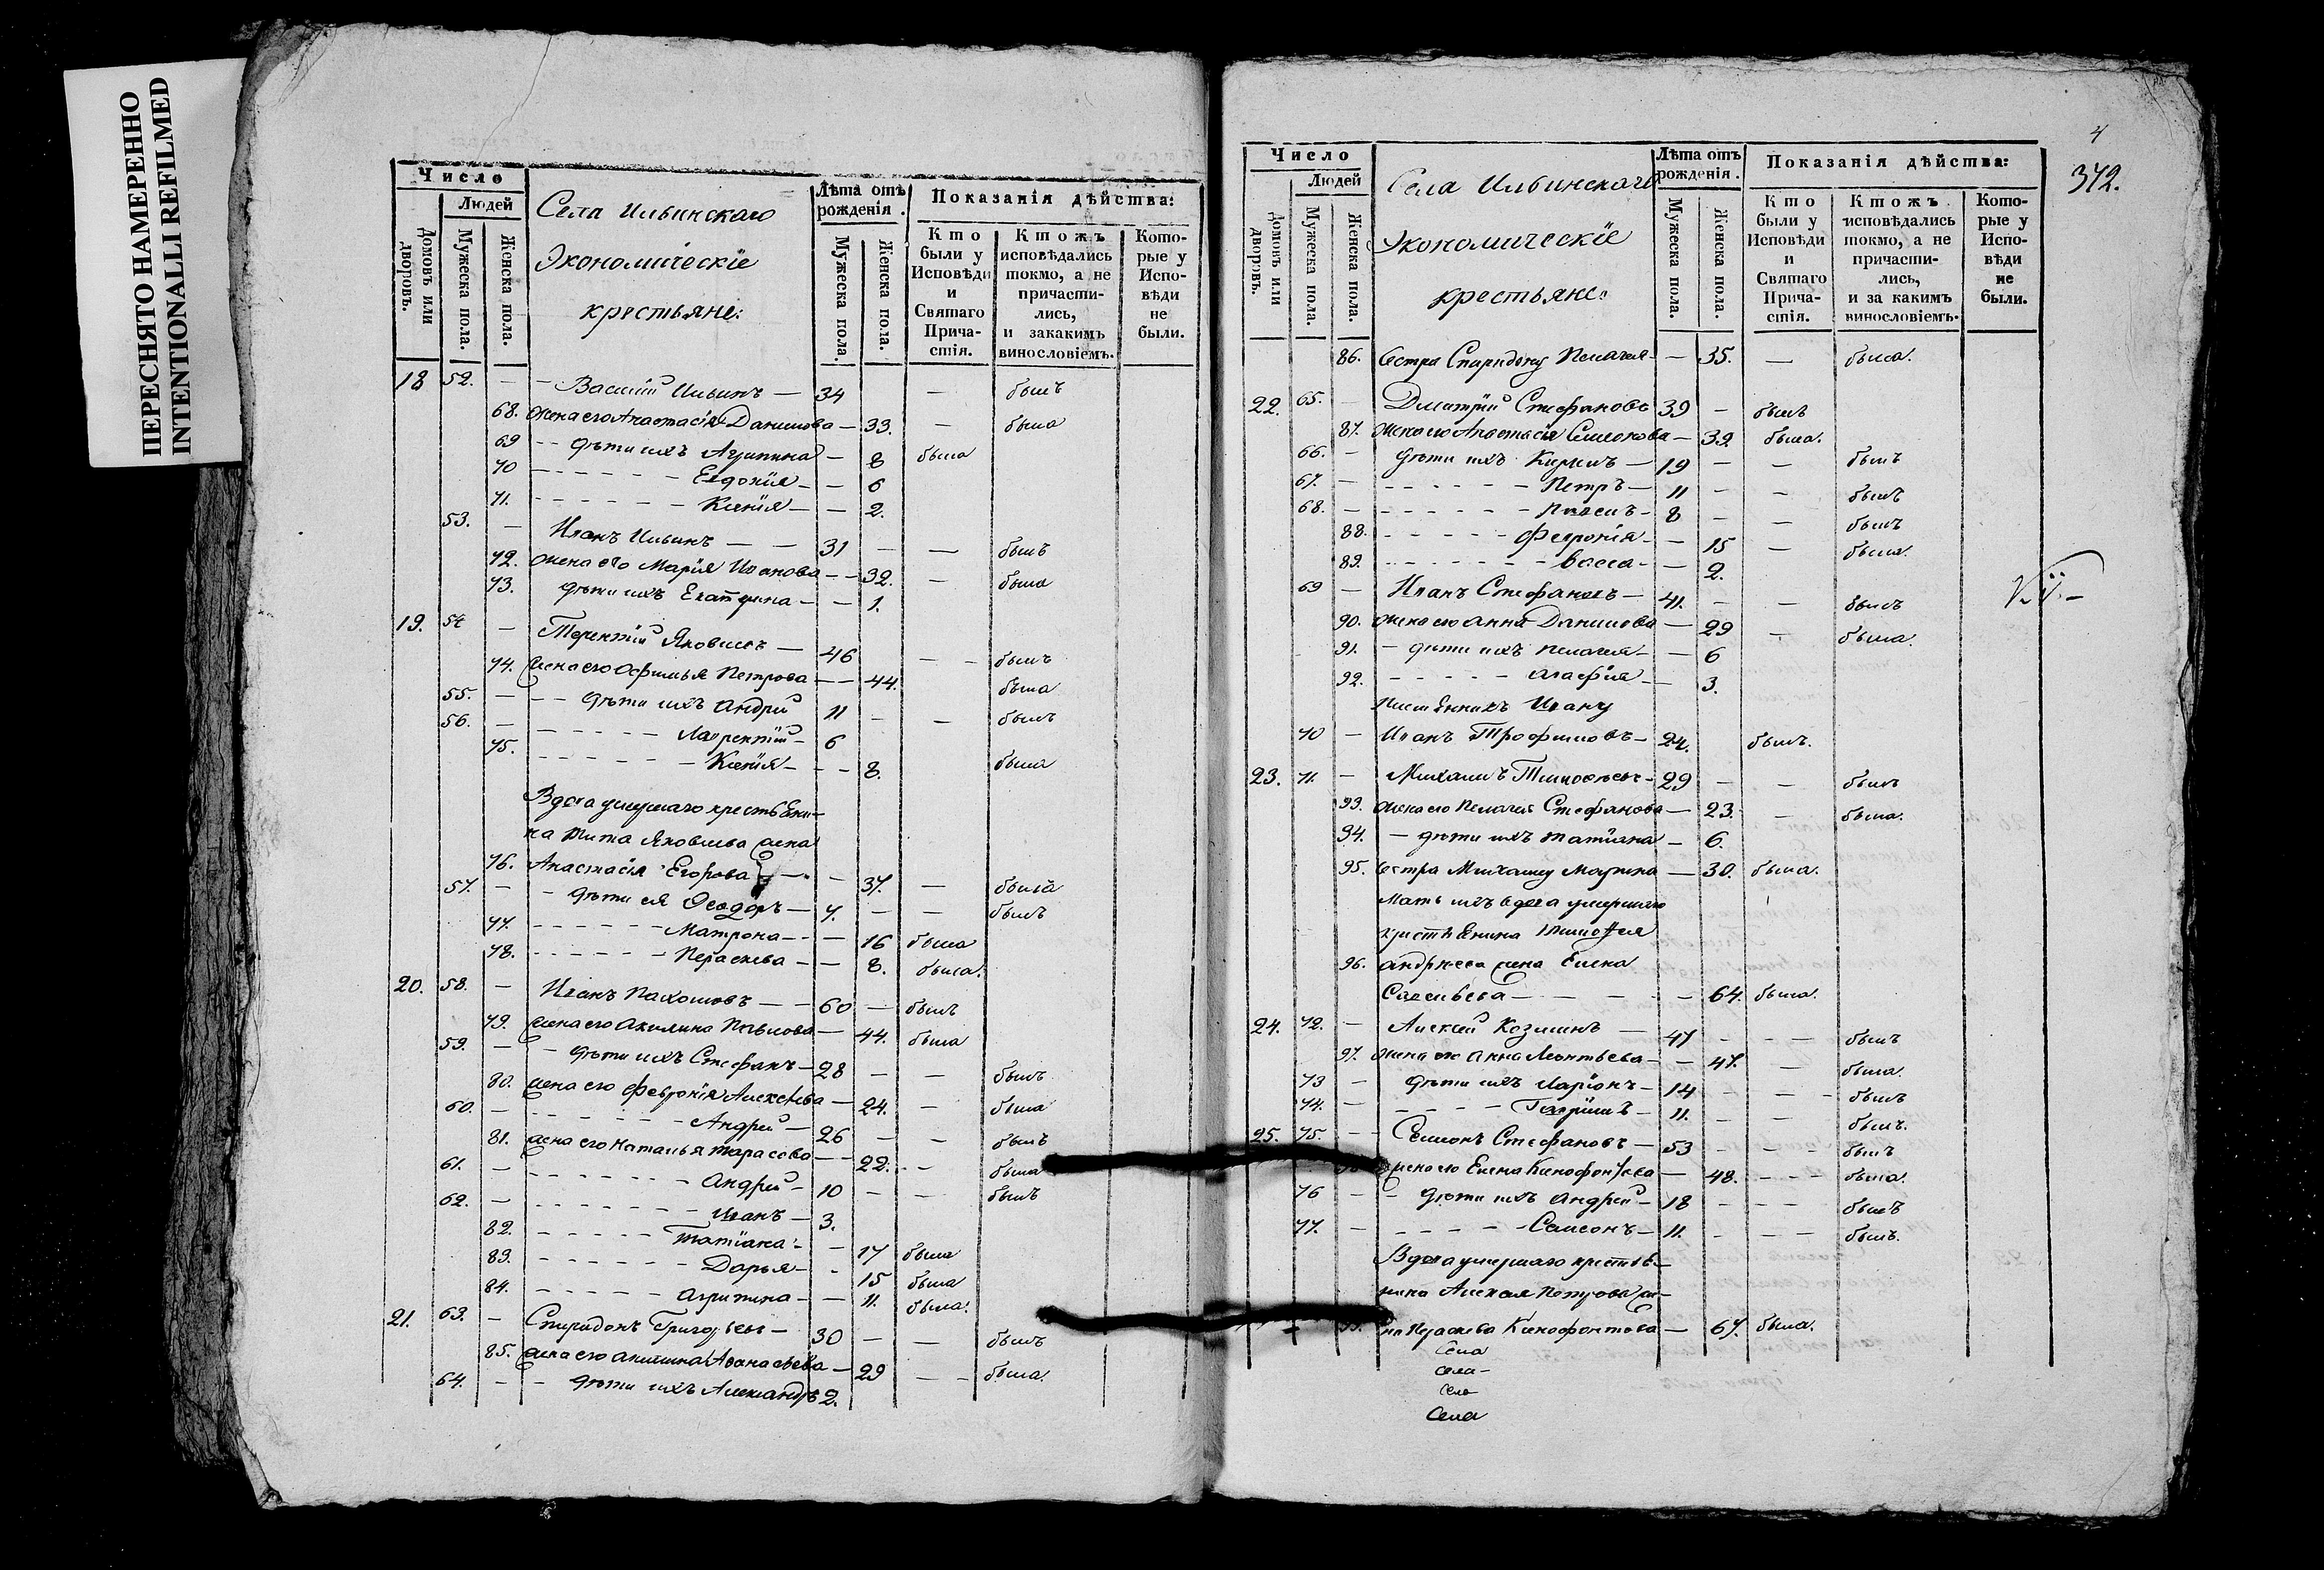 ПЕРЕСНЯТО НАМЕРЕННО
INTENTIONALLI REFILMED
Число
Людей
Домовъ или дворовъ.
Мужеска пола.
Женска пола.
Села Ильинскаго
Экономическіе
крестьяне:
Лѣта отъ рожденія.
Мужеска пола.
Женска пола.
Показанія дѣйства:
Кто были у Исповѣди и Святаго Причастія.
Ктожъ исповѣдались токмо, а не причастились, и закакимъ винословіемъ.
Которые у Исповѣди не были.
18 52. — Василій Ильинъ — 34 — былъ
68. жена его Анастасія Данилова — 33. — была
69 — дѣти ихъ Агрипина — 8 была
70 — Евдокія — — 6
71. — Ксенія — — 2.
53. — Иванъ Ильинъ — — 31 — — былъ
72. жена его Марія Иванова — — 32. — была
73. дѣти ихъ Екатерина — — 1.
19. 54 — Терентій Яковлевъ — 46 — — былъ
74. жена его Афимья Петрова — — 44. была
55. — — дѣти ихъ Андрей 11 — — былъ
56. — — Лаврентій — 6
75. — Ксенія — — — 8. была
Вдова умершаго крестьяни-
на Тита Яковлева жена
76. Анастасія Егорова — — 37. — была
57. — — дѣти ея Ѳеодоръ — 7. — — былъ
77. — Матрона — — — 16 была
78. — Параскева — — 8. была.
20. 58. — Иванъ Пахомовъ — — 60 — былъ
79. жена его Акилина Павлова — 44. была
59. — — дѣти ихъ Стефанъ — 28 — — былъ
80. жена его Февронія Алексѣева — 24. — была
60. — — Андрей — 26 — — былъ
81. жена его Наталья Тарасова — — 22. — была
61. — — Андрей — 10 — — былъ
62. — — Иванъ — 3.
82. — Татіана — — 17 была
83. — Дарья — - 15 была
84. — Агрипина — — 11. была.
21. 63. — Спиридонъ Григорьевъ — 30 — — былъ
85. жена его Акилина Аѳанасьева — 29 — — была.
64. — — дѣти ихъ Александръ 2.
4
342.
Число
Людей
Домовъ или дворовъ.
Мужеска пола.
Женска пола.
Села Ильинскаго
Экономическіе
крестьяне:
Лѣта отъ рожденія.
Мужеска пола.
Женска пола.
Показанія дѣйства:
Кто были у Исповѣди и Святаго Причастія.
Ктожъ исповѣдались токмо, а не причастились, и за какимъ винословіемъ.
Которые у Исповѣди не были.
86. Сестра Спиридону Пелагея — — 35. — была.
22. 65. — Дмитрій Стефановъ 39 — былъ
87. жена его Анастасія Симеонова — 39. была.
66. — дѣти ихъ Кирилъ — 19 — — былъ
67. — — Петръ — 11 — — былъ
68. — — Павелъ — 8 — — былъ
88. — Февронія — — 15 — была.
89. — Васса — — 2.
69 — Иванъ Стефановъ — 41. — — былъ
90. жена его Анна Данилова — 29 — была.
91. — дѣти ихъ Пелагея — — 6
92. — Агафия — — 3.
Племянникъ Ивану
70 — Иванъ Трофимовъ — 24. былъ.
23. 71. — Михаилъ Тимофѣевъ — 29 — — былъ
93. жена его Пелагея Стефанова — 23. — была.
94. — дѣти ихъ Татіана — 6.
95. Сестра Михаилу Марина — 30. была.
Мать ихъ вдова умершаго
крестьянина Тимофея
96. Андреева жена Елена
Савельева — — — — 64. была.
24. 72. — Алексей Козминъ — 47 — — — былъ
97. жена его Анна Леонтьева — — 47. — была.
73 — дѣти ихъ Ларіонъ — 14 — — — былъ
74. — — Гавріилъ — 11. — — былъ.
25. 75. — Семионъ Стефановъ — 53 — — — былъ
жена его Елена Ксенофонтова — 48. — — — была.
76 — — дѣти ихъ Андрей — 18 — — — былъ
77. — — Самсонъ — 11. — — — былъ.
Вдова умершаго крестья-
нина Алексея Петрова же-
на Параскева Ксенофонтова — 67. была.
Села
села —
село
Села